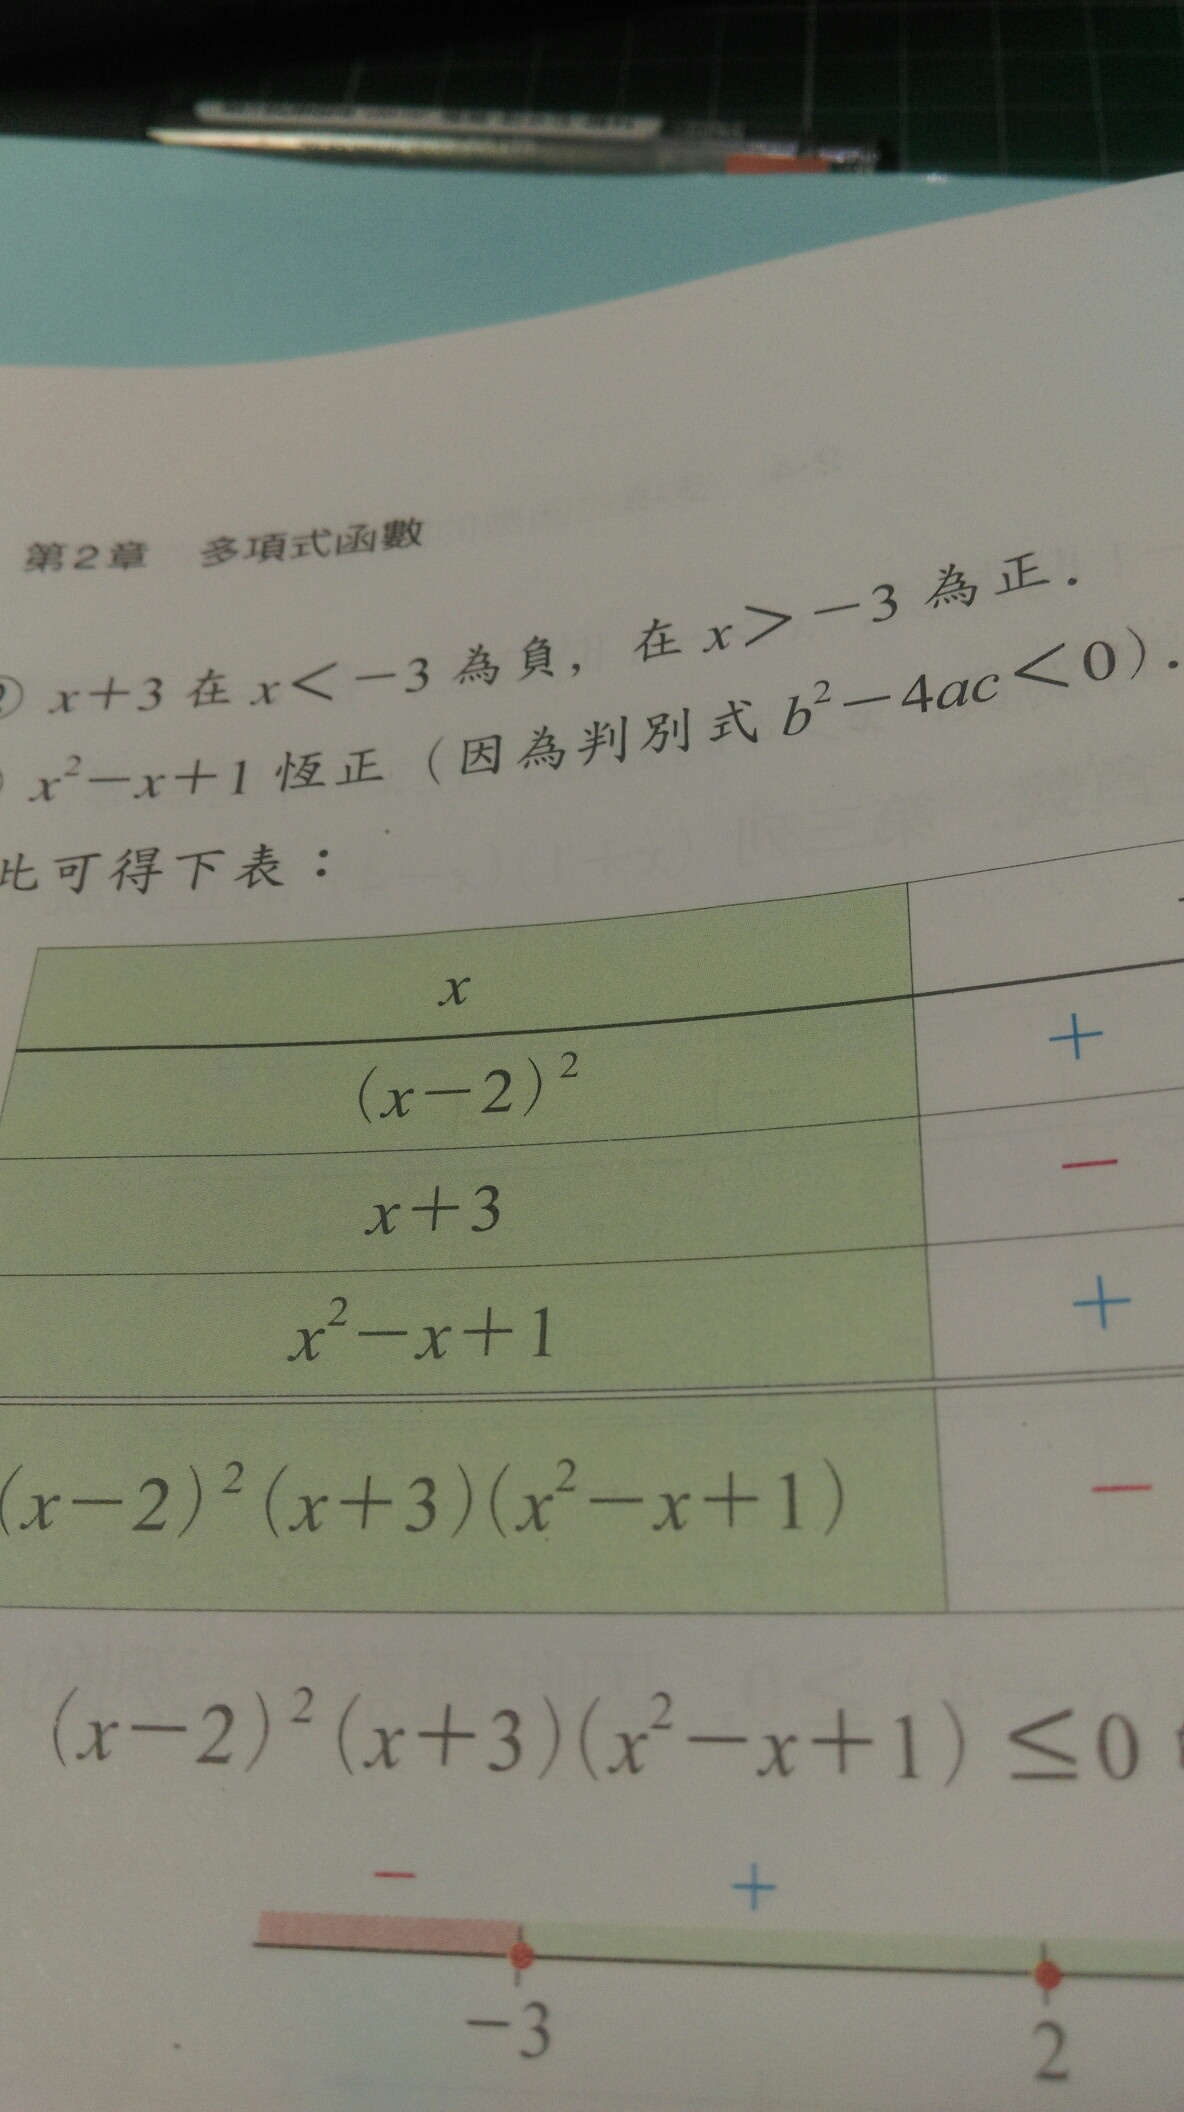 第2章 多項式函數
x+3 在 x<-3 為負，在 x>-3 為正．
x²-x+1 恆正（因為判別式 b²-4ac<0）．
此可得下表：
x
(x-2)² +
x+3 −
x²-x+1 +
(x-2)²(x+3)(x²-x+1) −
(x-2)²(x+3)(x²-x+1)≤0
− +
-3 2